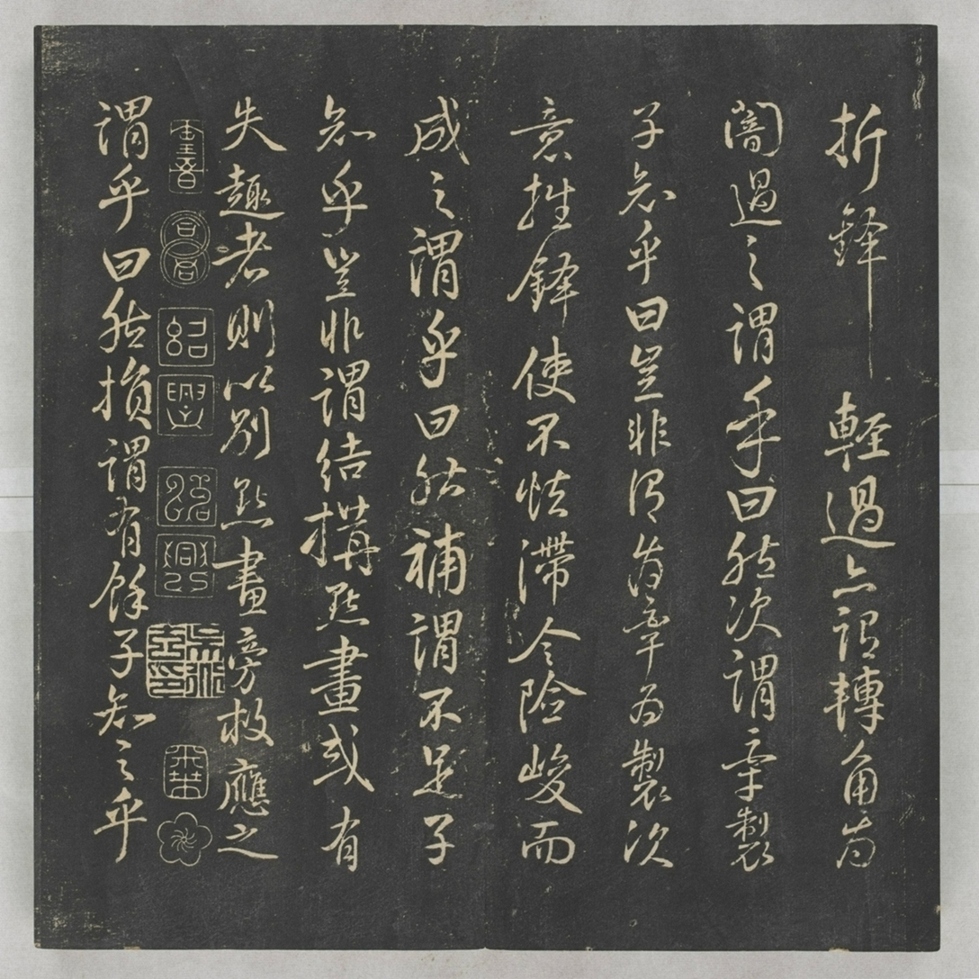 折鋒輕過亦謂轉角為
闇過之謂乎曰然次謂牽製
子知乎曰豈非謂為牽為製次
意挫鋒使不怯滯令險峻而
成之謂乎曰然補謂不足子
知乎豈非謂結搆點畫或有
失趣者則以別點畫旁救應之
紹興
紹興
謂乎曰然損謂有餘子知之乎